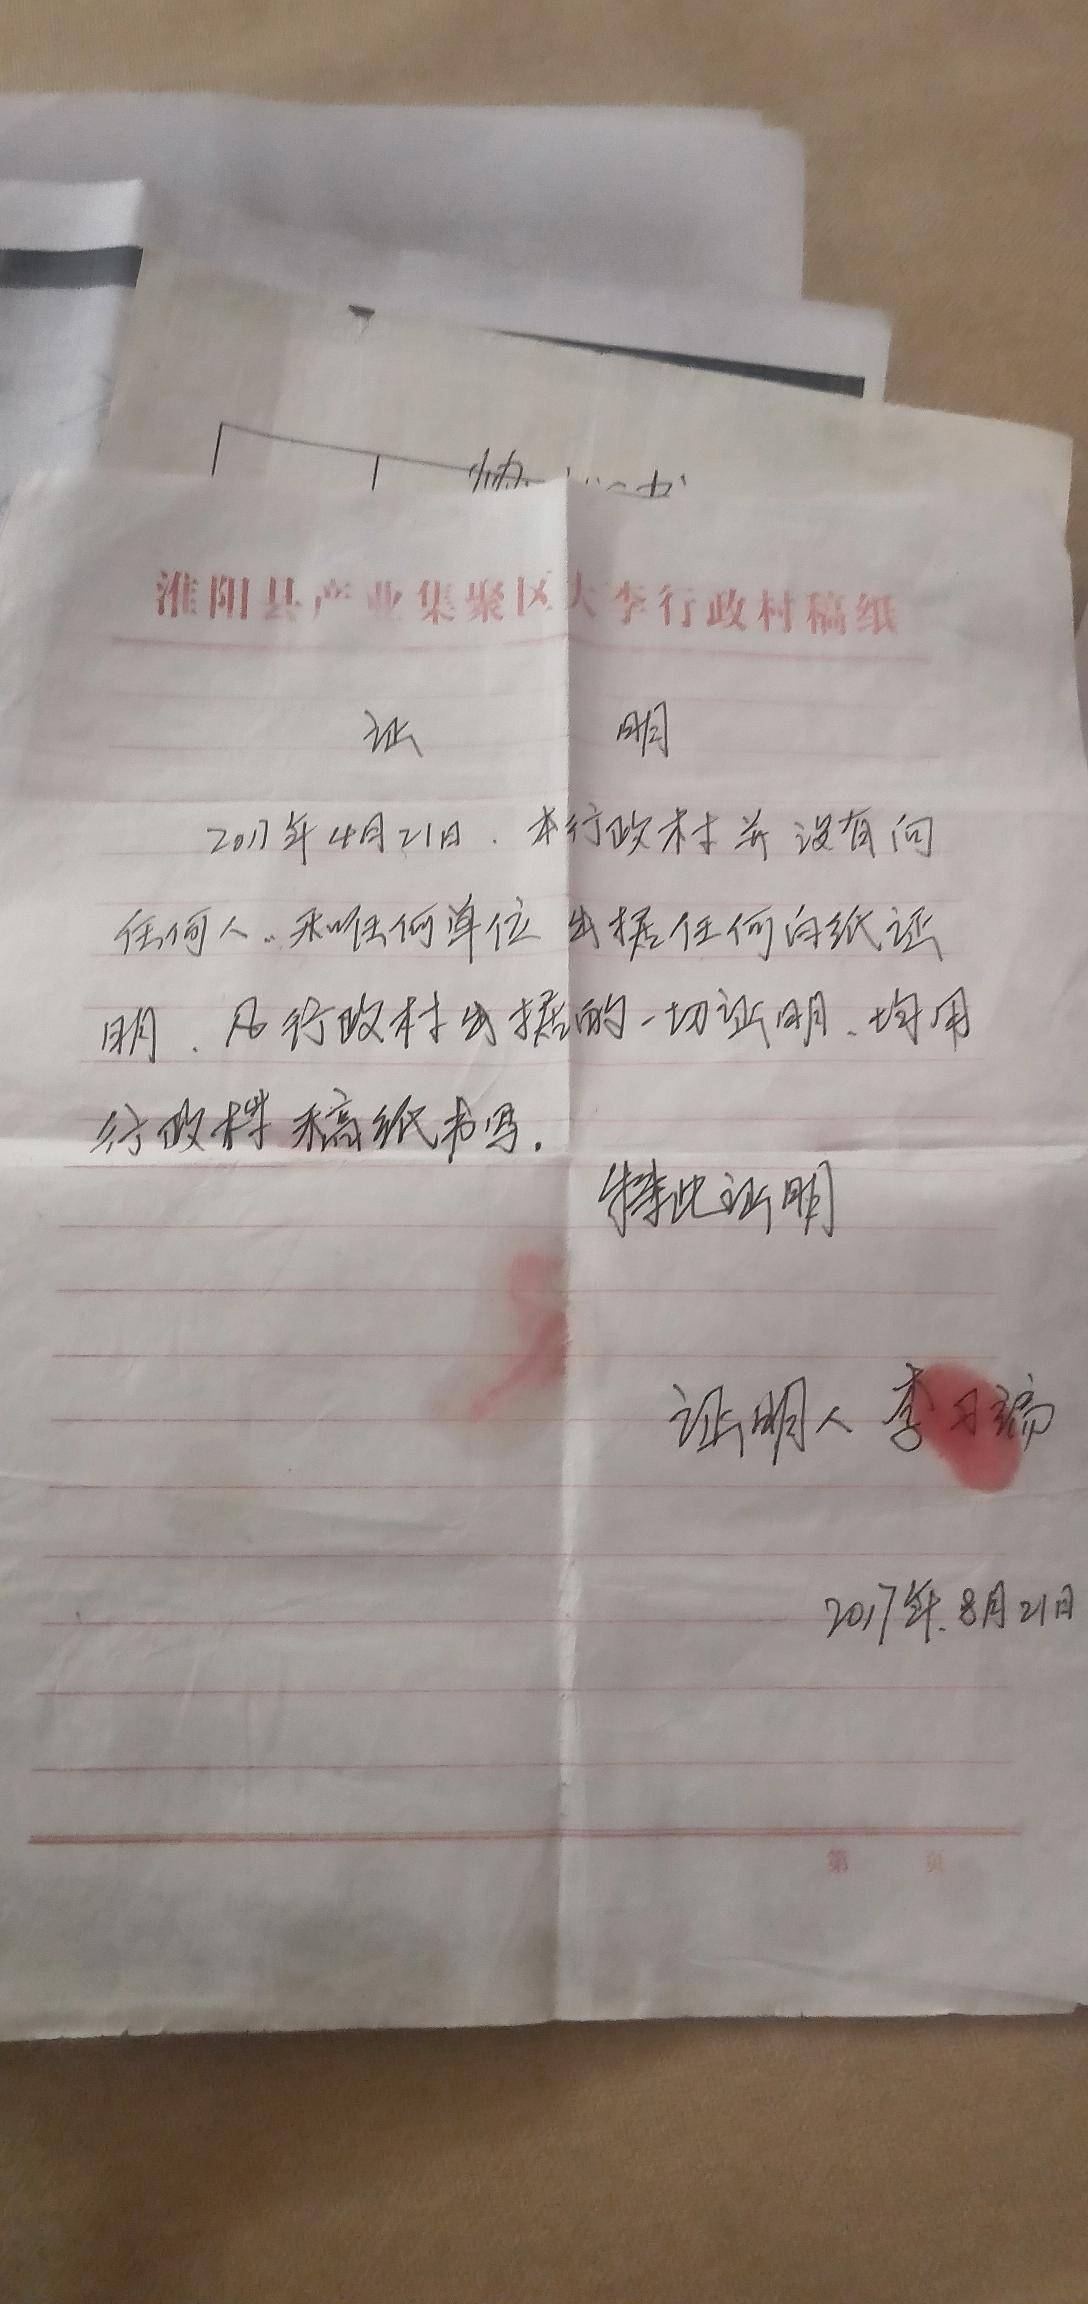 淮阳县产业集聚区大李行政村稿纸
证 明
2017年4月21日、本行政村并没有向
任何人、和任何单位出据任何白纸证
明、凡行政村出据的一切证明、均用
行政村稿纸书写.
特此证明
证明人 李
2017年.8月21日
第 页